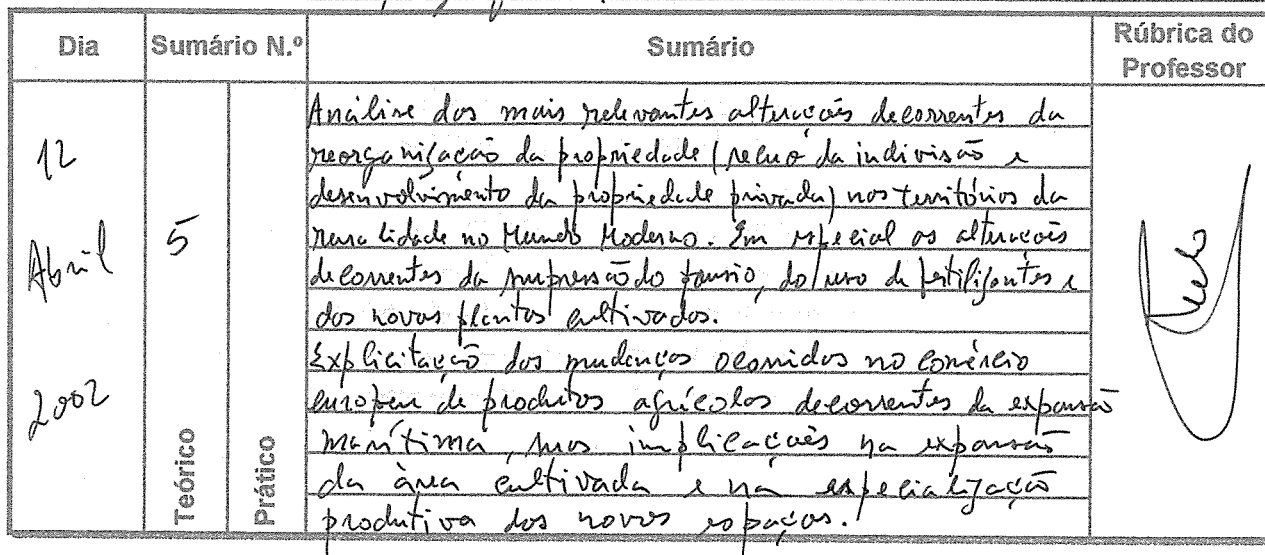 Dia
Sumário N.º
Sumário
Rúbrica do
Professor
12
Abril
2002
5
Teórico
Prático
Análise das mais relevantes alterações decorrentes da
reorganização da propriedade (recuo da indivisão e
desenvolvimento da propriedade privada) nos territórios da
ruralidade no Mundo Moderno. Em especial as alterações
decorrentes da supressão do pousio, do uso de fertilizantes e
das novas plantas cultivadas.
Explicitação das mudanças ocorridas no comércio
europeu de produtos agrícolas decorrentes da expansão
marítima, suas implicações na expansão
da área cultivada e na especialização
produtiva dos novos espaços.